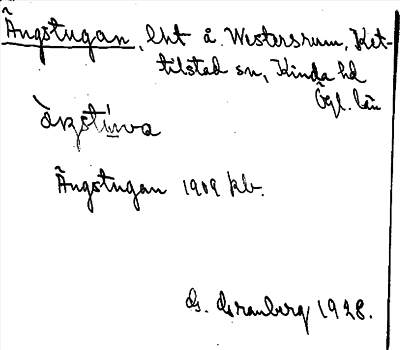 Ängstugan, lht å. Westersrum, Ket-
tilstad sn, Kinda hd
Ögl. län
Ängstugan 1909 kb.
G. Granberg 1928.